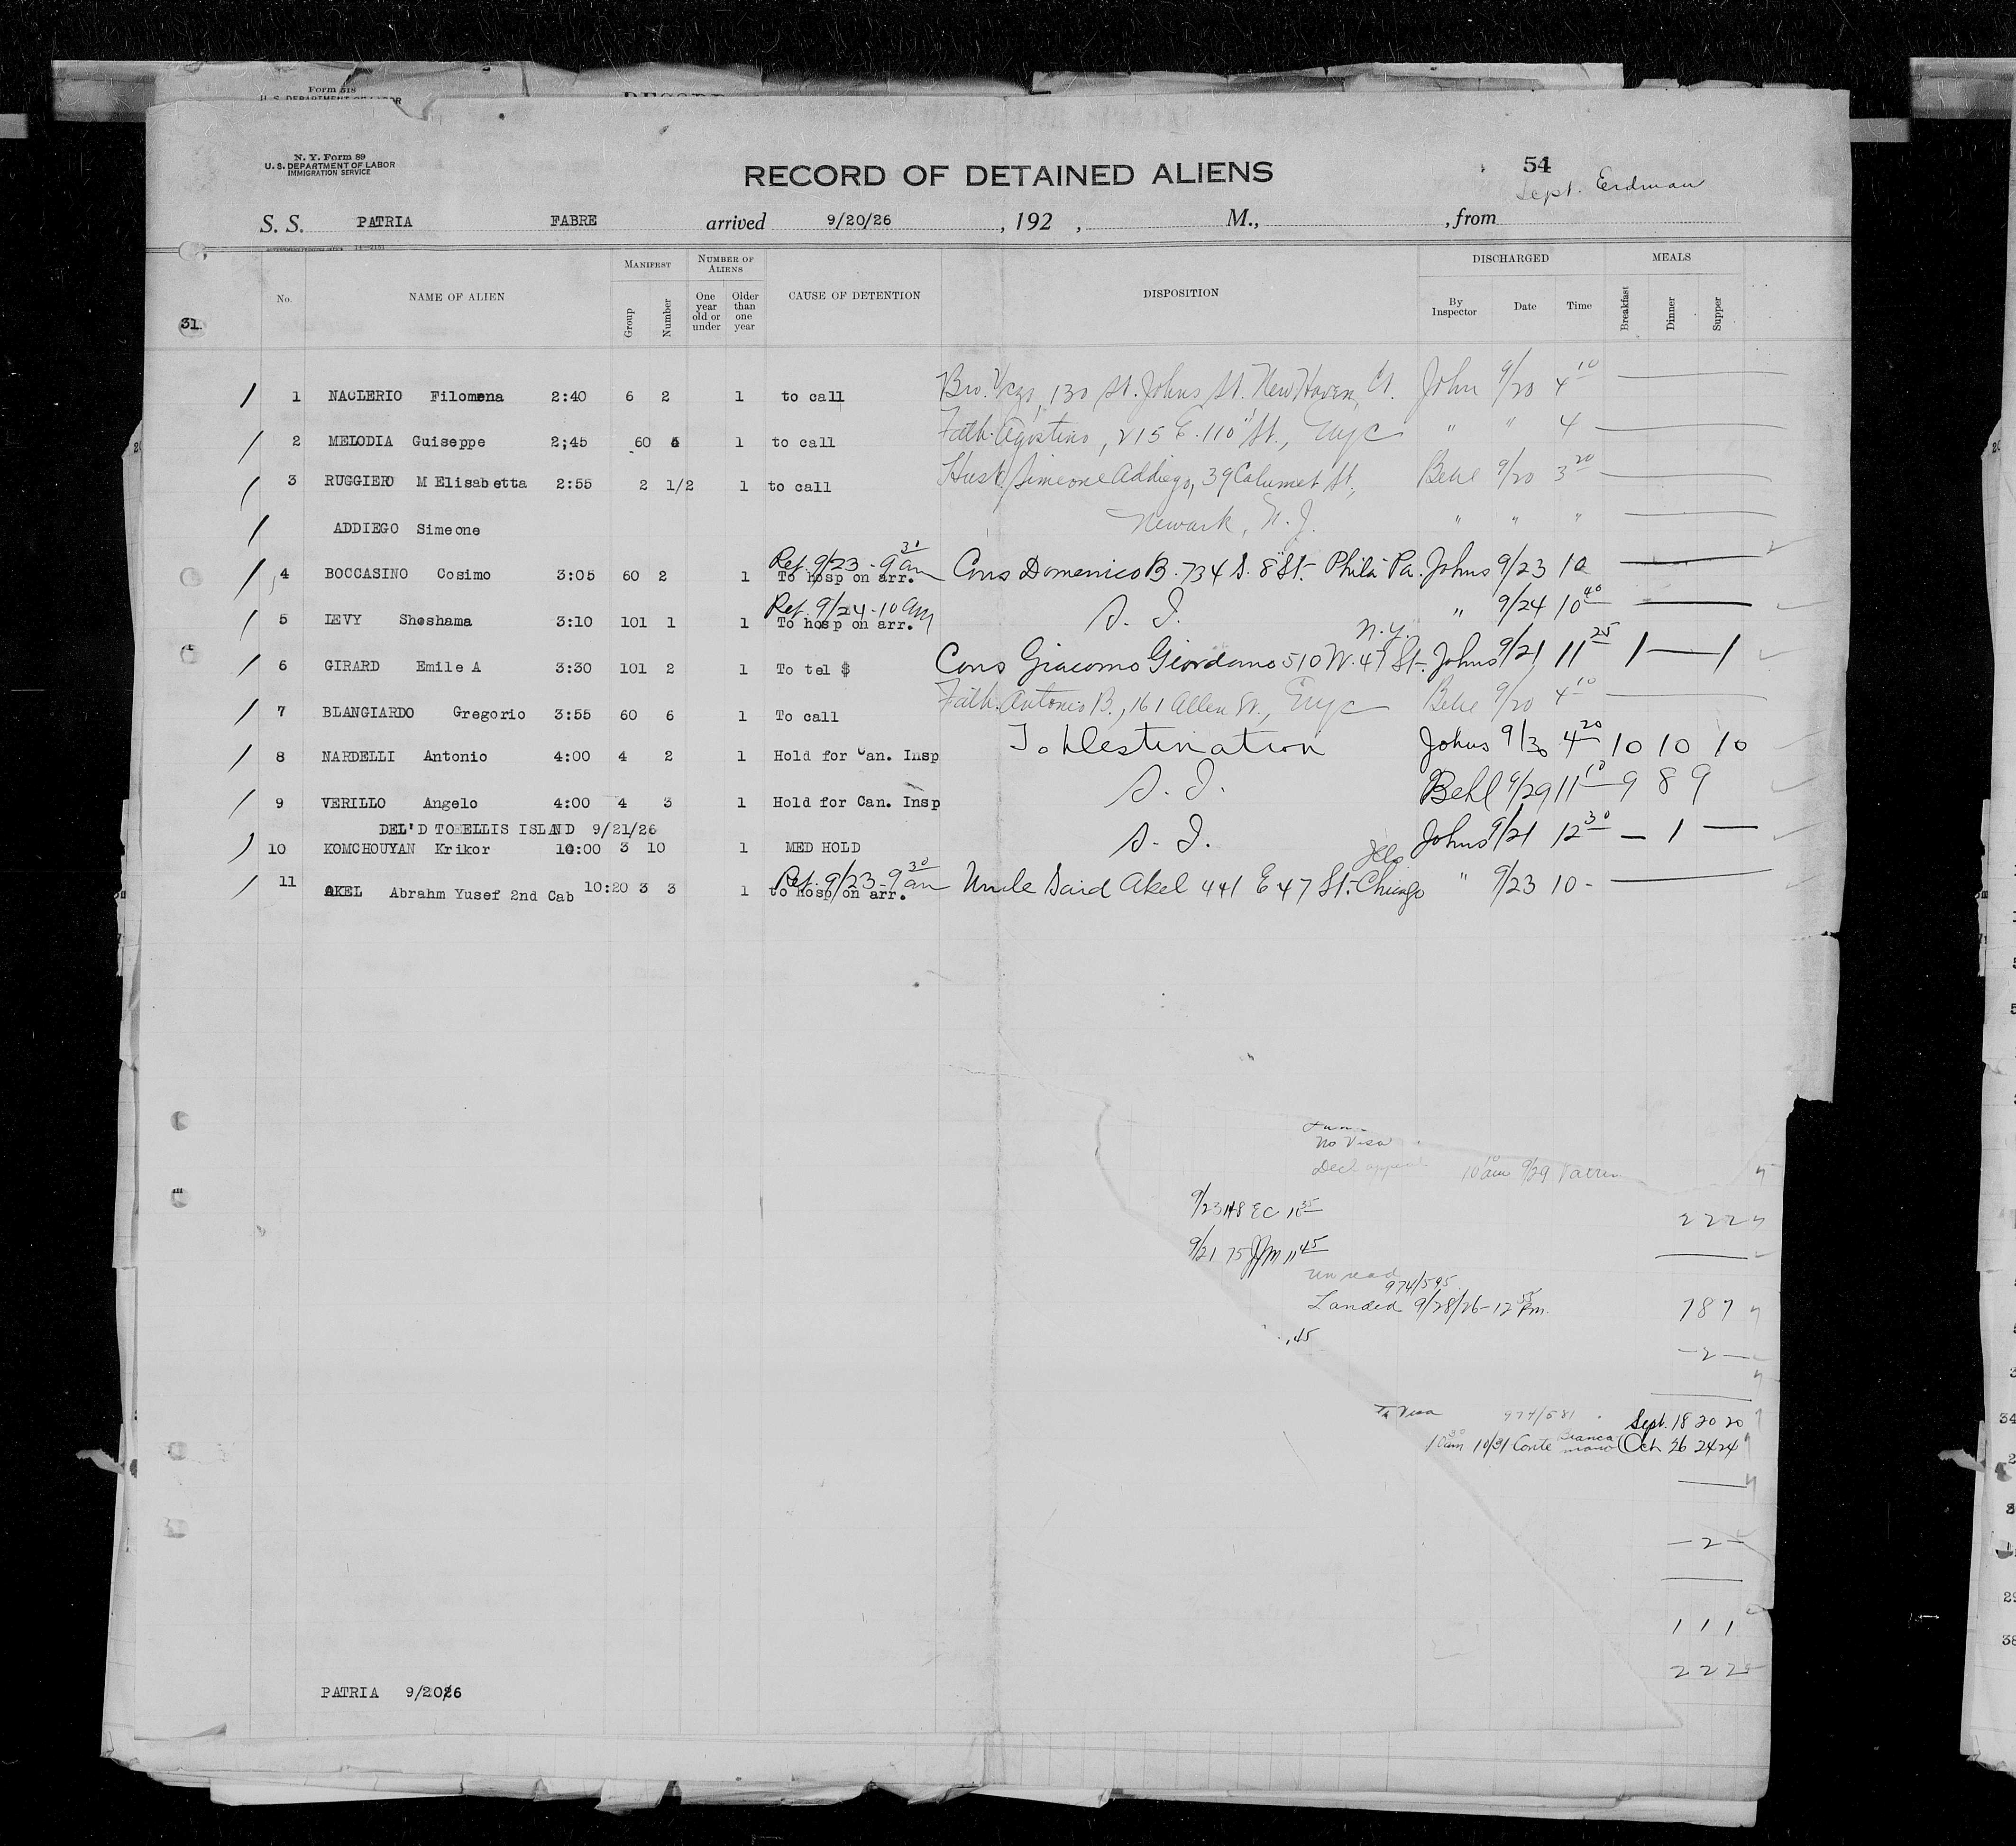 Form 518
U. S. DEPARTMENT OF LABOR
N. Y. Form 89
U. S. DEPARTMENT OF LABOR
IMMIGRATION SERVICE
RECORD OF DETAINED ALIENS
54
Sept. Erdman
S. S. PATRIA FABRE arrived 9/20/26 , 192 , M., , from
No. NAME OF ALIEN MANIFEST NUMBER OF ALIENS CAUSE OF DETENTION DISPOSITION DISCHARGED MEALS
Group Number One year old or under Older than one year By Inspector Date Time Breakfast Dinner Supper
31.
1 NACLERIO Filomena 2:40 6 2 1 to call Bro. 130 St. Johns St. New Haven, Ct. John 9/20 4 10
2 MELODIA Guiseppe 2;45 60 6 1 to call Fath. Agostino, 215 E. 110" St., Nyc " " 4
3 RUGGIERO M Elisabetta 2:55 2 1/2 1 to call Husb. Simeone Addiego, 39 Calumet St., Behl 9/20 3 20
ADDIEGO Simeone Newark, N. J. " " "
Ret. 9/23 - 9 30 am
4 BOCCASINO Cosimo 3:05 60 2 1 To hosp on arr. Cons Domenico B. 734 S. 8 St. Phila Pa. Johns 9/23 10
Ret. 9/24 - 10 am
5 LEVY Shoshama 3:10 101 1 1 To hosp on arr. S. I. " 9/24 10 40
N.Y.
6 GIRARD Emile A 3:30 101 2 1 To tel $ Cons Giacomo Giordano 510 W. 47 St. Johns 9/21 11 25 1 — 1
7 BLANGIARDO Gregorio 3:55 60 6 1 To call Fath. Antonio B., 161 Allen St., Nyc Behl 9/20 4 10
8 NARDELLI Antonio 4:00 4 2 1 Hold for Can. Insp To Destination Johns 9/30 4 20 10 10 10
9 VERILLO Angelo 4:00 4 3 1 Hold for Can. Insp S. I. Behl 9/29 11 10 9 8 9
DEL'D TO ELLIS ISLAND 9/21/26
10 KOMCHOUYAN Krikor 10:00 3 10 1 MED HOLD S. I. Johns 9/21 12 30 — 1 —
Ret. 9/23 - 9 30 am Ills
11 AKEL Abrahm Yusef 2nd Cab 10:20 3 3 1 to hosp on arr. Uncle Said Akel 441 E 47 St. Chicago " 9/23 10 -
No Visa
10 10 am 9/29 Patria
9/23 H8 EC 10 35
2 2 2
9/21 75 JJM 11 45
974/595
Landed 9/28/26 - 12 55 Pm.
7 8 7
,45
— 2 —
Visa 974/581 Sept. 18 20 20
10 30 am 10/31 Conte Biancamano Oct 26 24 24
— 2 —
1 1 1
2 2 2
PATRIA 9/20/26